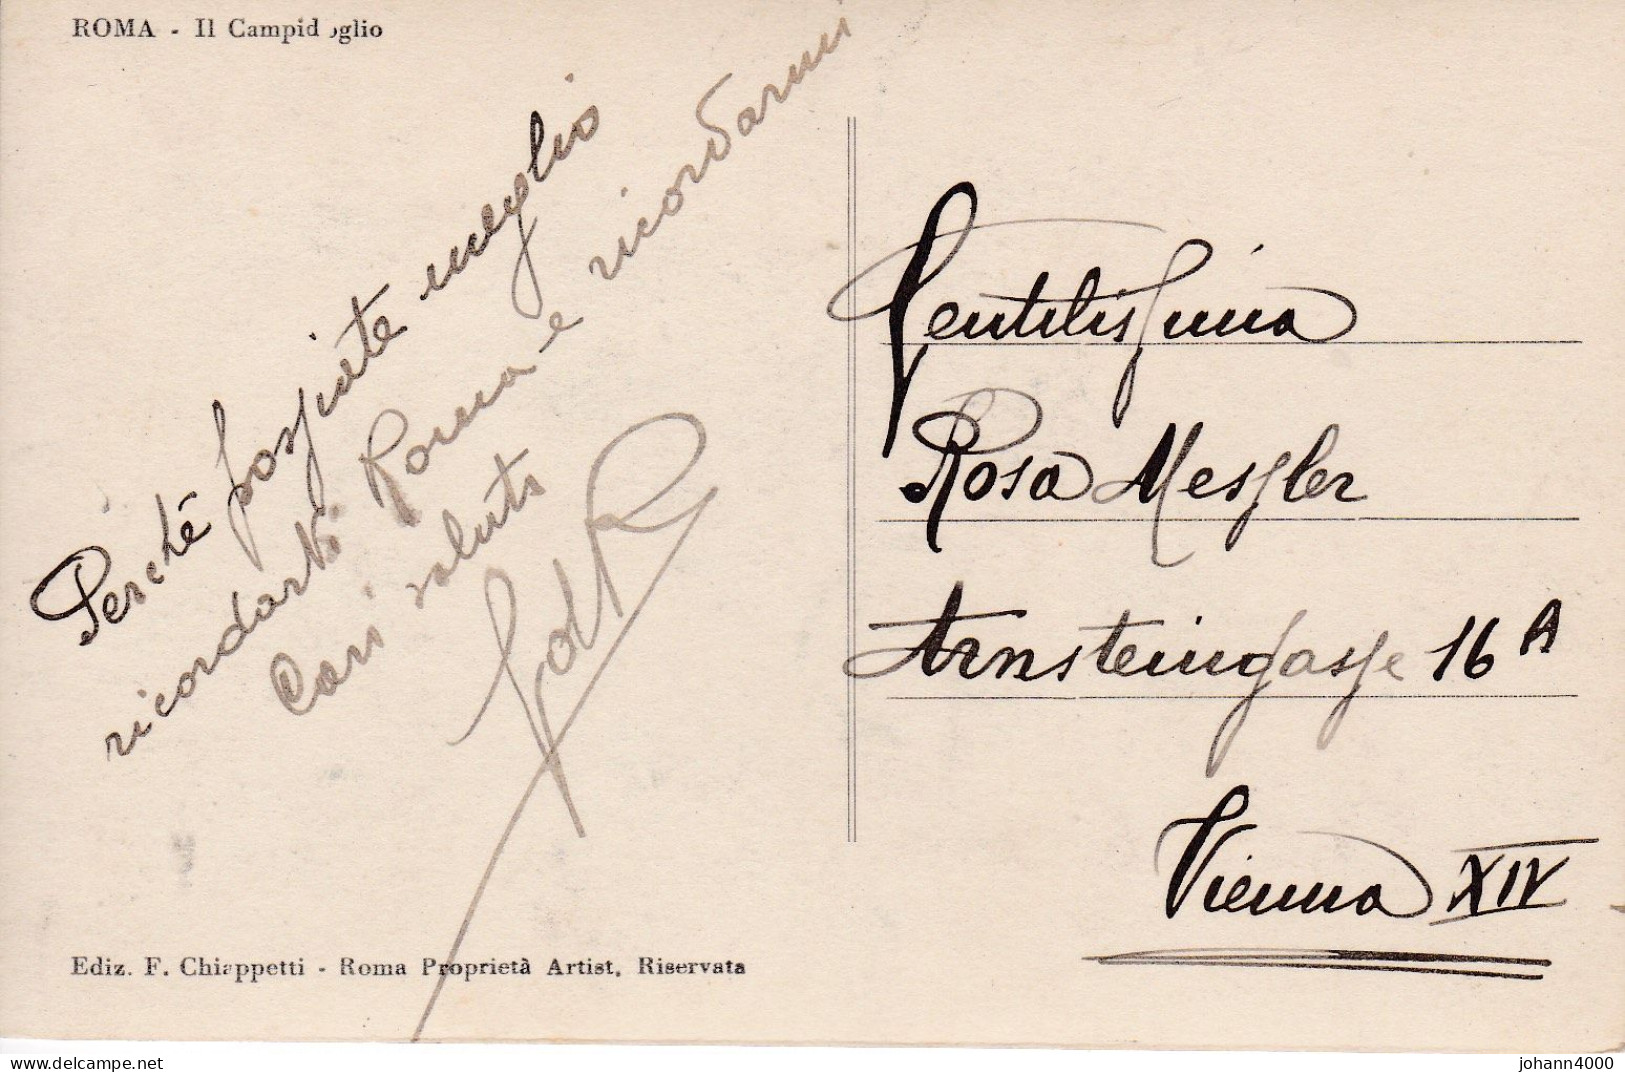 ROMA - Il Campidoglio
Perché possiate meglio
ricordarti Roma e ricordarmi
Cari saluti
Gentilissima
Rosa Messler
Arnsteingasse 16A
Vienna XIV
Ediz. F. Chiappetti - Roma Proprietà Artist. Riservata
www.delcampe.net
johann4000